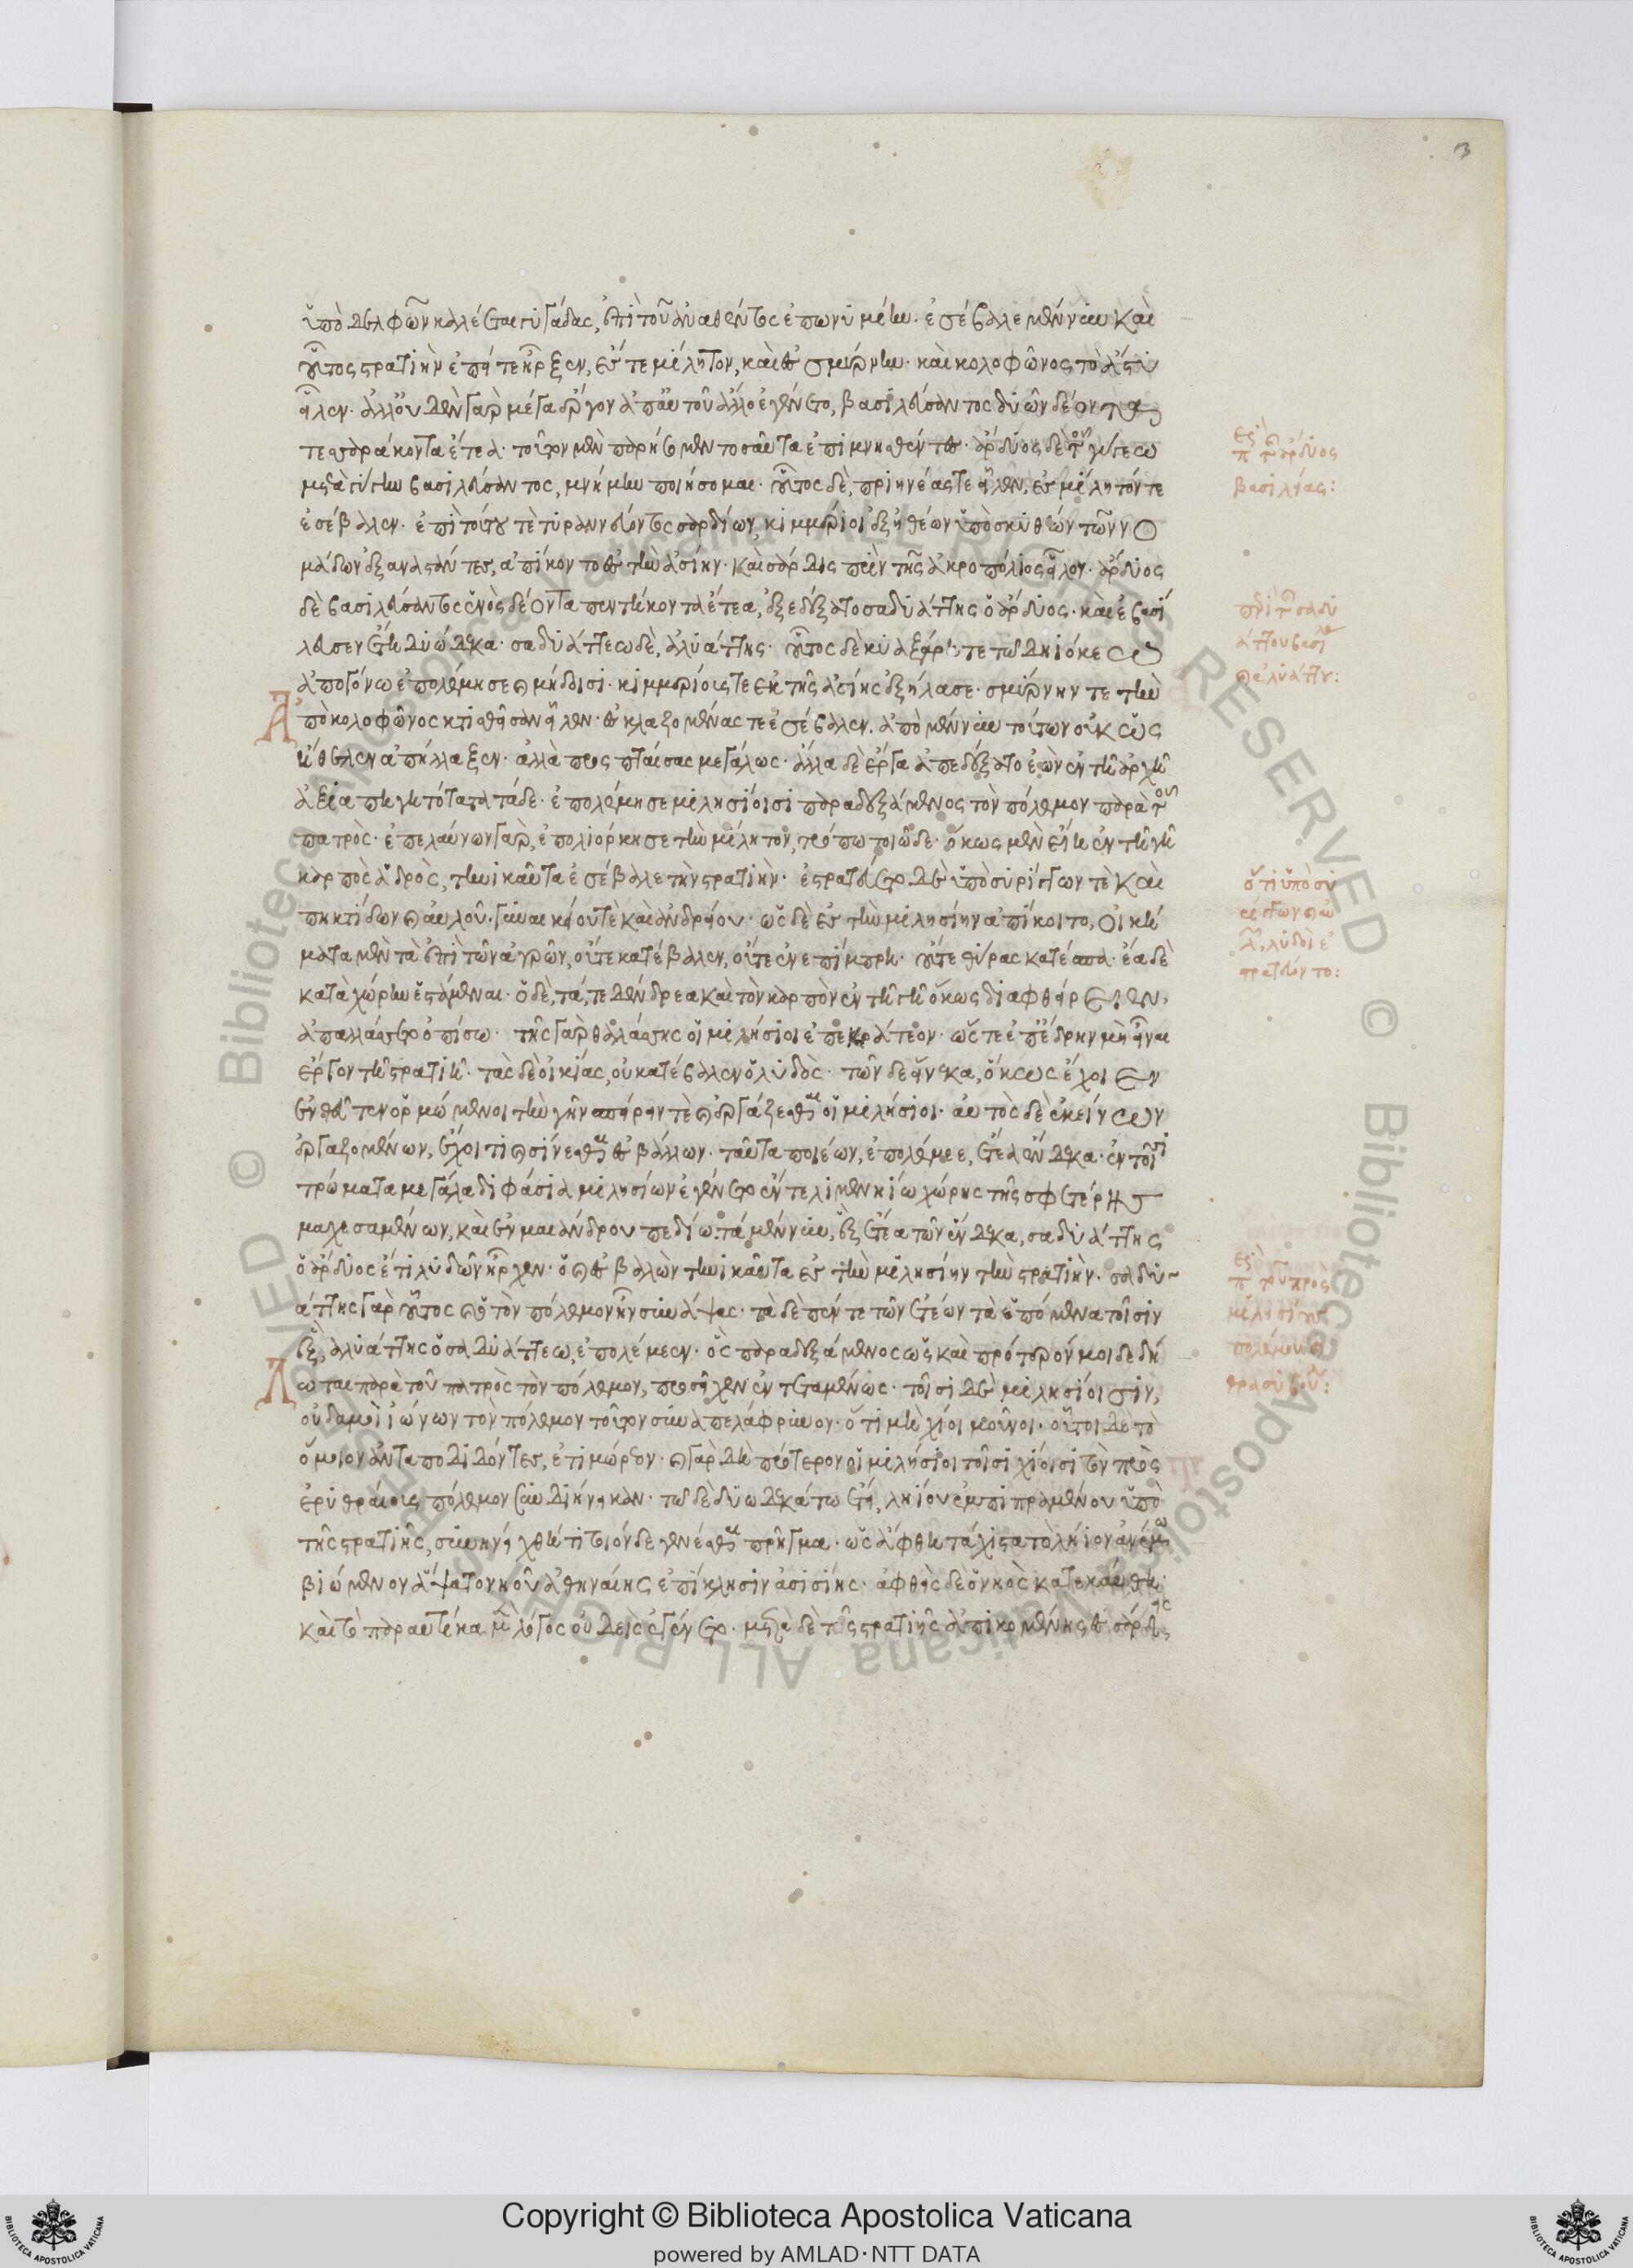 3
ὑπὸ δελφῶν καλέεται γυγάδας, ἐπὶ τοῦ ἀναθέντος ἐπωνυμίην· ἐσέβαλε μέν νυν καὶ
οὗτος στρατιὴν ἐπεί τε ἦρξεν, ἔς τε μίλητον, καὶ ἐς σμύρνην· καὶ κολοφῶνος τὸ ἄστυ
εἷλεν· ἀλλ' οὐδὲν γὰρ μέγα ἔργον ἀπ' αὐτοῦ ἄλλο ἐγένετο, βασιλεύσαντος δυῶν δέοντα
τεσσεράκοντα ἔτεα· τοῦτον μὲν παρήσομεν τοσαῦτα ἐπιμνησθέντες· ἄρδυος δὲ τοῦ γύγεω
μετὰ γύγην βασιλεύσαντος, μνήμην ποιήσομαι· οὗτος δὲ, πριηνέας τε εἷλεν, ἐς μίλητόν τε
ἐσέβαλεν· ἐπὶ τούτου τε τυραννεύοντος σαρδίων, κιμμέριοι ἐξ ἠθέων ὑπὸ σκυθέων τῶν νο
μάδων ἐξαναστάντες, ἀπίκοντο ἐς τὴν ἀσίην· καὶ σάρδις πλὴν τῆς ἀκροπόλιος εἷλον· ἄρδυος
δὲ βασιλεύσαντος ἑνὸς δέοντα πεντήκοντα ἔτεα, ἐξεδέξατο σαδυάττης ὁ ἄρδυος· καὶ ἐβασί
λευσεν ἔτη δυώδεκα· σαδυάττεω δὲ, ἀλυάττης· οὗτος δὲ κυαξάρη τε τῶ δηιόκεω
ἀπογόνω ἐπολέμησε καὶ μήδοισι· κιμμερίους τε ἐκ τῆς ἀσίης ἐξήλασε· σμύρνην τε τὴν
ἀπὸ κολοφῶνος κτισθεῖσαν εἷλεν· ἐς κλαζομένας τε ἐσέβαλεν. ἀπὸ μέν νυν τούτων οὐκ ὡς
ἤθελεν ἀπήλλαξεν· ἀλλὰ προσπταίσας μεγάλως· ἄλλα δὲ ἔργα ἀπεδέξατο ἐὼν ἐν τῆ ἀρχῆ
ἀξιαπηγητότατα τάδε· ἐπολέμησε μιλησίοισι παραδεξάμενος τὸν πόλεμον παρὰ τοῦ
πατρὸς· ἐπελαύνων γὰρ, ἐπολιόρκησε τὴν μίλητον, τρόπω τοιῶδε· ὅκως μὲν εἴη ἐν τῆ γῆ
καρπὸς ἁδρὸς, τηνικαῦτα ἐσέβαλε τὴν στρατιὴν· ἐστρατεύετο δὲ ὑπὸ συρίγγων τε καὶ
πηκτίδων καὶ αὐλοῦ· γυναικηίου τε καὶ ἀνδρηίου· ὡς δὲ ἐς τὴν μιλησίην ἀπίκοιτο, οἰκή
ματα μὲν τὰ ἐπὶ τῶν ἀγρῶν, οὔτε κατέβαλεν, οὔτε ἐνεπίμπρη· οὔτε θύρας κατέσπα· ἔα δὲ
κατὰ χώρην ἑστάμεναι· ὁ δὲ, τά, τε δένδρεα καὶ τὸν καρπὸν ἐν τῆ γῆ ὅκως διαφθείρειεν,
ἀπαλλάσσετο ὀπίσω· τῆς γὰρ θαλάσσης οἱ μιλήσιοι ἐπεκράτεον· ὥστε ἐπέδρην μὴ εἶναι
ἔργον τῆ στρατιῆ· τὰς δὲ οἰκίας, οὐ κατέβαλεν ὁ λυδὸς· τῶν δε εἵνεκα, ὅκως ἔχοιεν
ἐνθεῦτεν ὁρμώμενοι τὴν γῆν σπείρειν τὲ καὶ ἐργάζεσθαι οἱ μιλήσιοι· αὐτὸς δὲ ἐκείνων
ἐργαζομένων, ἔχοι τι καὶ σίνεσθαι ἐσβάλλων· ταῦτα ποιέων, ἐπολέμεε, ἔτεα ἕνδεκα· ἐν τοῖσι
τρώματα μεγάλα διφάσια μιλησίων ἐγένετο ἔν τε λιμενηίω χώρης τῆς σφετέρης
μαχεσαμένων, καὶ ἐν μαιάνδρου πεδίω· τὰ μέν νυν, ἓξ ἔτεα τῶν ἕνδεκα, σαδυάττης
ὁ ἄρδυος ἔτι λυδῶν ἦρχεν· ὁ καὶ ἐσβαλὼν τηνικαῦτα ἐς τὴν μιλησίην τὴν στρατιὴν· σαδυ
άττης γὰρ οὗτος καὶ ὁ τὸν πόλεμον ἦν συνάψας· τὰ δὲ πέντε τῶν ἐτέων τὰ ἑπόμενα τοῖσιν
ἓξ, ἀλυάττης ὁ σαδυάττεω, ἐπολέμεεν· ὃς παραδεξάμενος ὡς καὶ πρότερόν μοι δεδή
λωται παρὰ τοῦ πατρὸς τὸν πόλεμον, προσεῖχεν ἐντεταμένως· τοῖσι δὲ μιλησίοισιν,
οὐδαμοὶ ἰώνων τὸν πόλεμον τοῦτον συνεπελάφρυνον· ὅτι μὴ χῖοι μοῦνοι· οὗτοι δὲ τὸ
ὅμοιον ἀνταποδιδόντες, ἐτιμώρεον· καὶ γὰρ δὴ πρότερον οἱ μιλήσιοι τοῖσι χίοισι τὸν πρὸς
ἐρυθραίους πόλεμον συνδιήνεικαν· τῶ δὲ δυωδεκάτω ἔτεϊ, ληίου ἐμπιπραμένου ὑπὸ
τῆς στρατιῆς, συνηνείχθη τι τοιόνδε γενέσθαι πρῆγμα· ὡς ἅφθη τάχιστα τὸ λήιον ἀνέμω
βιώμενον ἅψατο νηοῦ ἀθηναίης ἐπίκλησιν ἀσσισίης· ἁφθεὶς δὲ ὁ νηὸς κατεκαύθη·
καὶ τὸ παραυτίκα μὲν λόγος οὐδεὶς ἐγένετο· μετὰ δὲ τῆς στρατιῆς ἀπικομένης ἐς σάρδις,
περὶ τῆς ἄρδυος
βασιλείας:
περὶ τῆς σαδυ
άττου βασιλ
καὶ ἀλυάττου:
ὅτι ὑπὸ συ
ρίγγων καὶ αὐ
λῶν, λυδοὶ ἐ
στρατεύοντο:
περὶ τοῦ πρὸς
μιλησίους
πολέμου καὶ
θρασυβούλ:
Copyright © Biblioteca Apostolica Vaticana
powered by AMLAD·NTT DATA